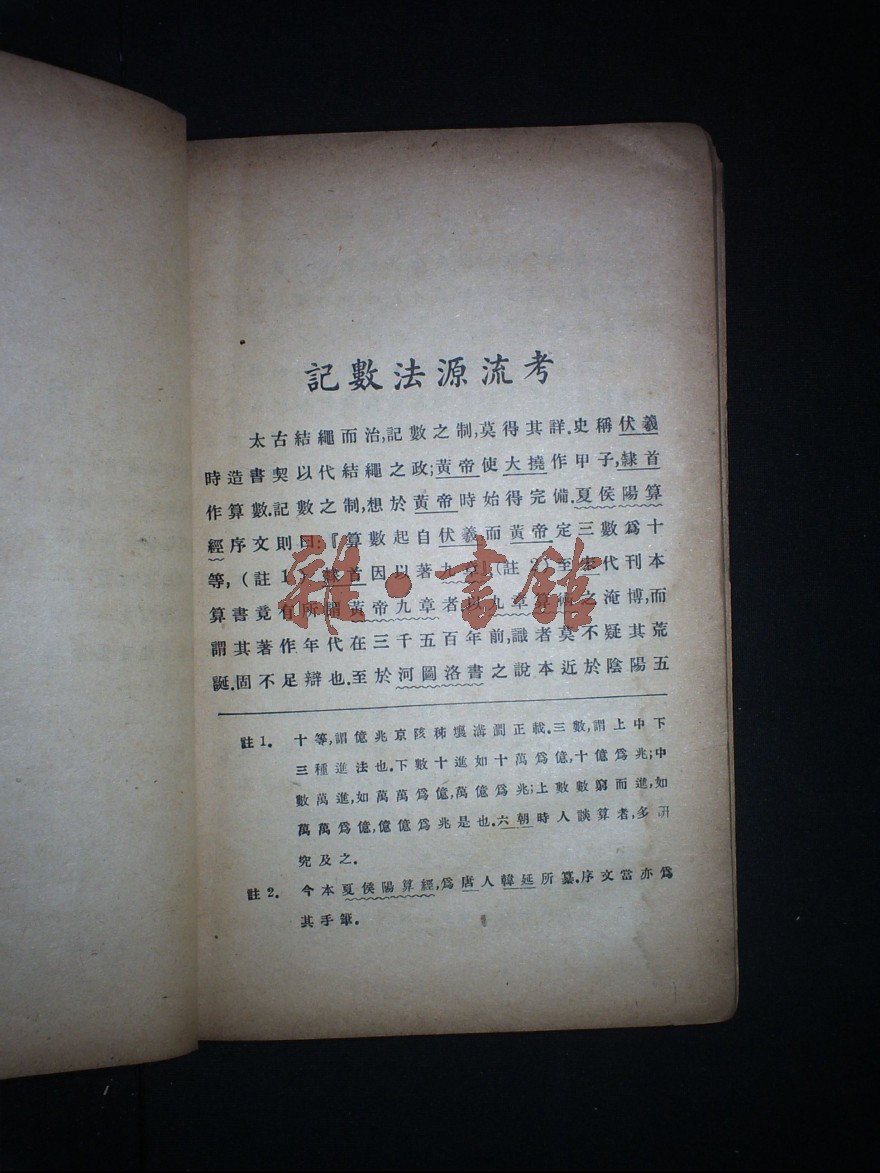 記數法源流考
太古結繩而治,記數之制,莫得其詳.史稱伏羲
時造書契以代結繩之政;黃帝使大撓作甲子,隸首
作算數.記數之制,想於黃帝時始得完備.夏侯陽算
經序文則曰:『算數起自伏羲而黃帝定三數爲十
等,(註1)隸首因以著九章』(註2)至宋代刊本
算書竟有所謂黃帝九章者以九章算術之淹博,而
謂其著作年代在三千五百年前,識者莫不疑其荒
誕.固不足辯也.至於河圖洛書之說本近於陰陽五
註1. 十等,謂億兆京陔秭壤溝澗正載.三數,謂上中下
三種進法也.下數十進如十萬爲億,十億爲兆;中
數萬進,如萬萬爲億,萬億爲兆;上數數窮而進,如
萬萬爲億,億億爲兆是也.六朝時人談算者,多研
究及之.
註2. 今本夏侯陽算經,爲唐人韓延所纂.序文當亦爲
其手筆.
雅·書館